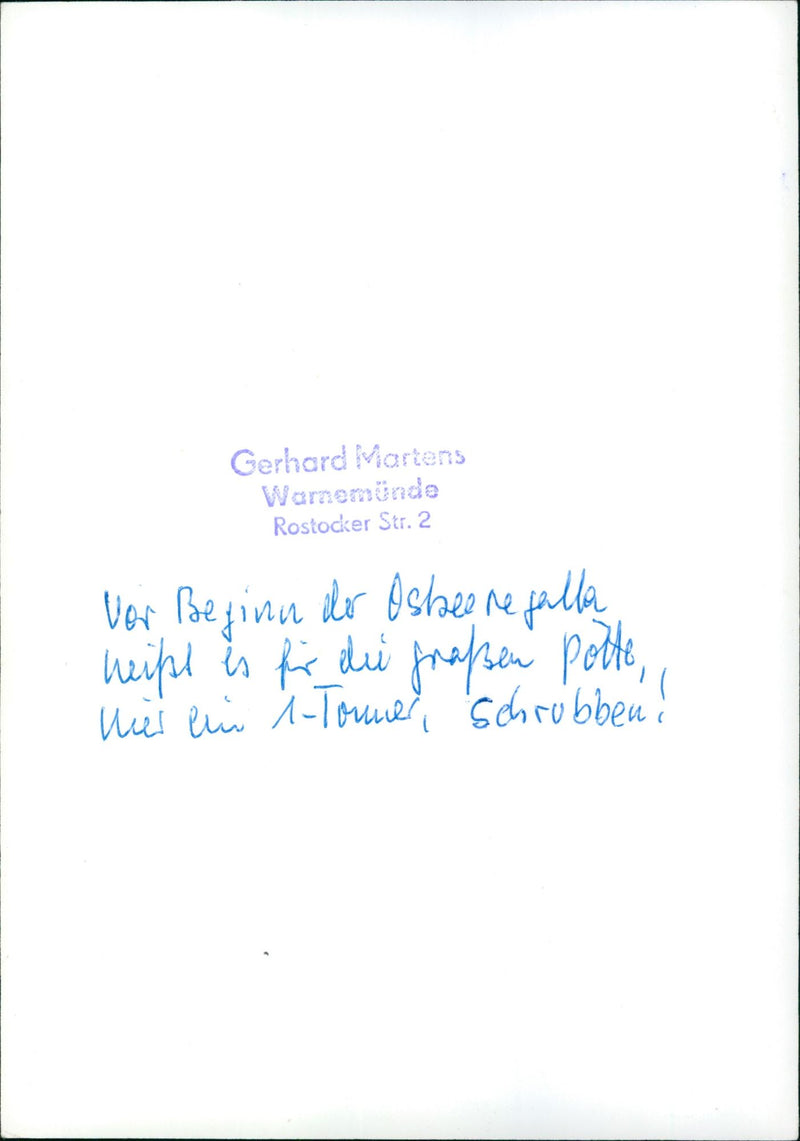 Gerhard Martens
Warnemünde
Rostocker Str. 2
Vor Beginn der Ostseeregatta
heißt es für die großen Pötte,
hier ein 1-Tonner, schrubben!